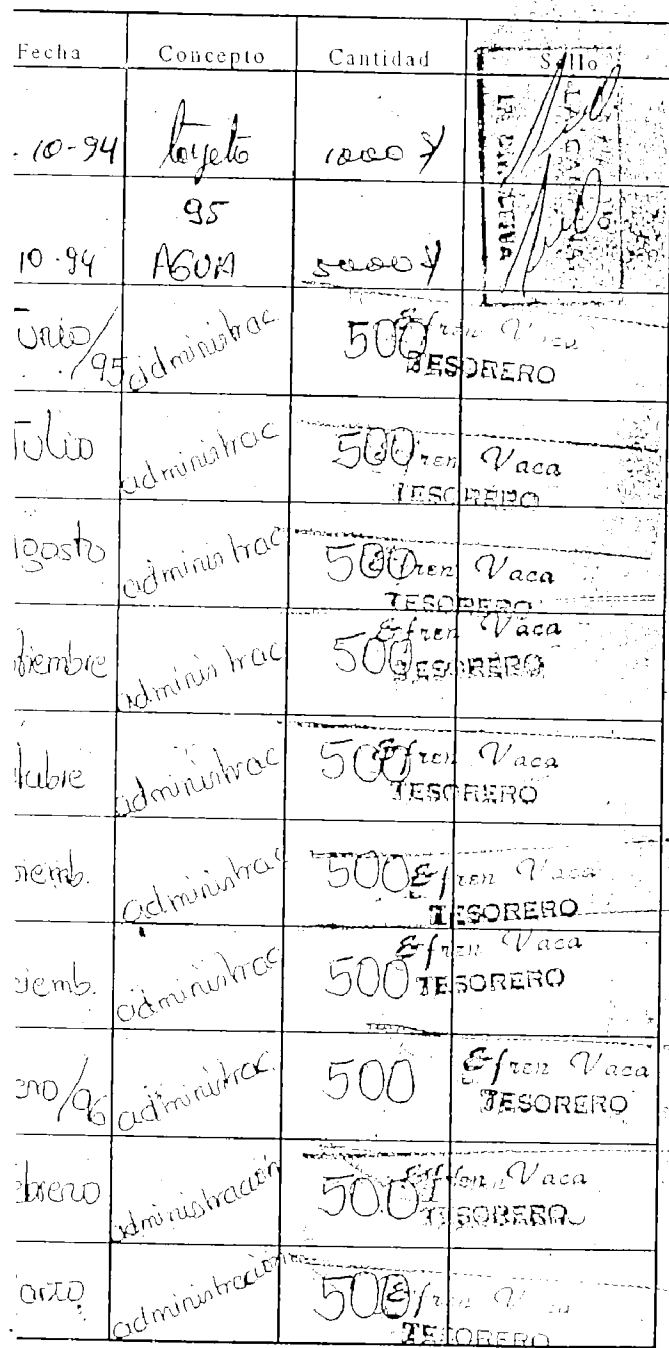 Fecha Concepto Cantidad Sello
10-94 tarjeta 1000 $
95
10-94 AGUA 5000 $
LA CAROLINA
Junio/95 administrac 500 Efren Vaca
TESORERO
Julio administrac 500 Efren Vaca
TESORERO
agosto administrac 500 Efren Vaca
TESORERO
tiembre administrac 500 Efren Vaca
TESORERO
tubre administrac 500 Efren Vaca
TESORERO
viemb. administrac 500 Efren Vaca
TESORERO
ciemb. administrac 500 Efren Vaca
TESORERO
ero/96 administrac. 500 Efren Vaca
TESORERO
ebrero administración 500 Efren Vaca
TESORERO
arzo administración 500 Efren Vaca
TESORERO